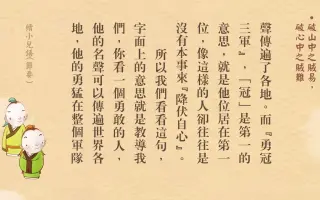 •破山中之賊易，
破心中之賊難
聲傳遍了各地。而『勇冠
三軍』，「冠」是第一的
意思，就是他位居在第一
位，像這樣的人卻往往是
沒有本事來『降伏自心』。
所以我們看看這句，
字面上的意思就是教導我
們，你看一個勇敢的人，
他的名聲可以傳遍世界各
地，他的勇猛在整個軍隊
續小兒語